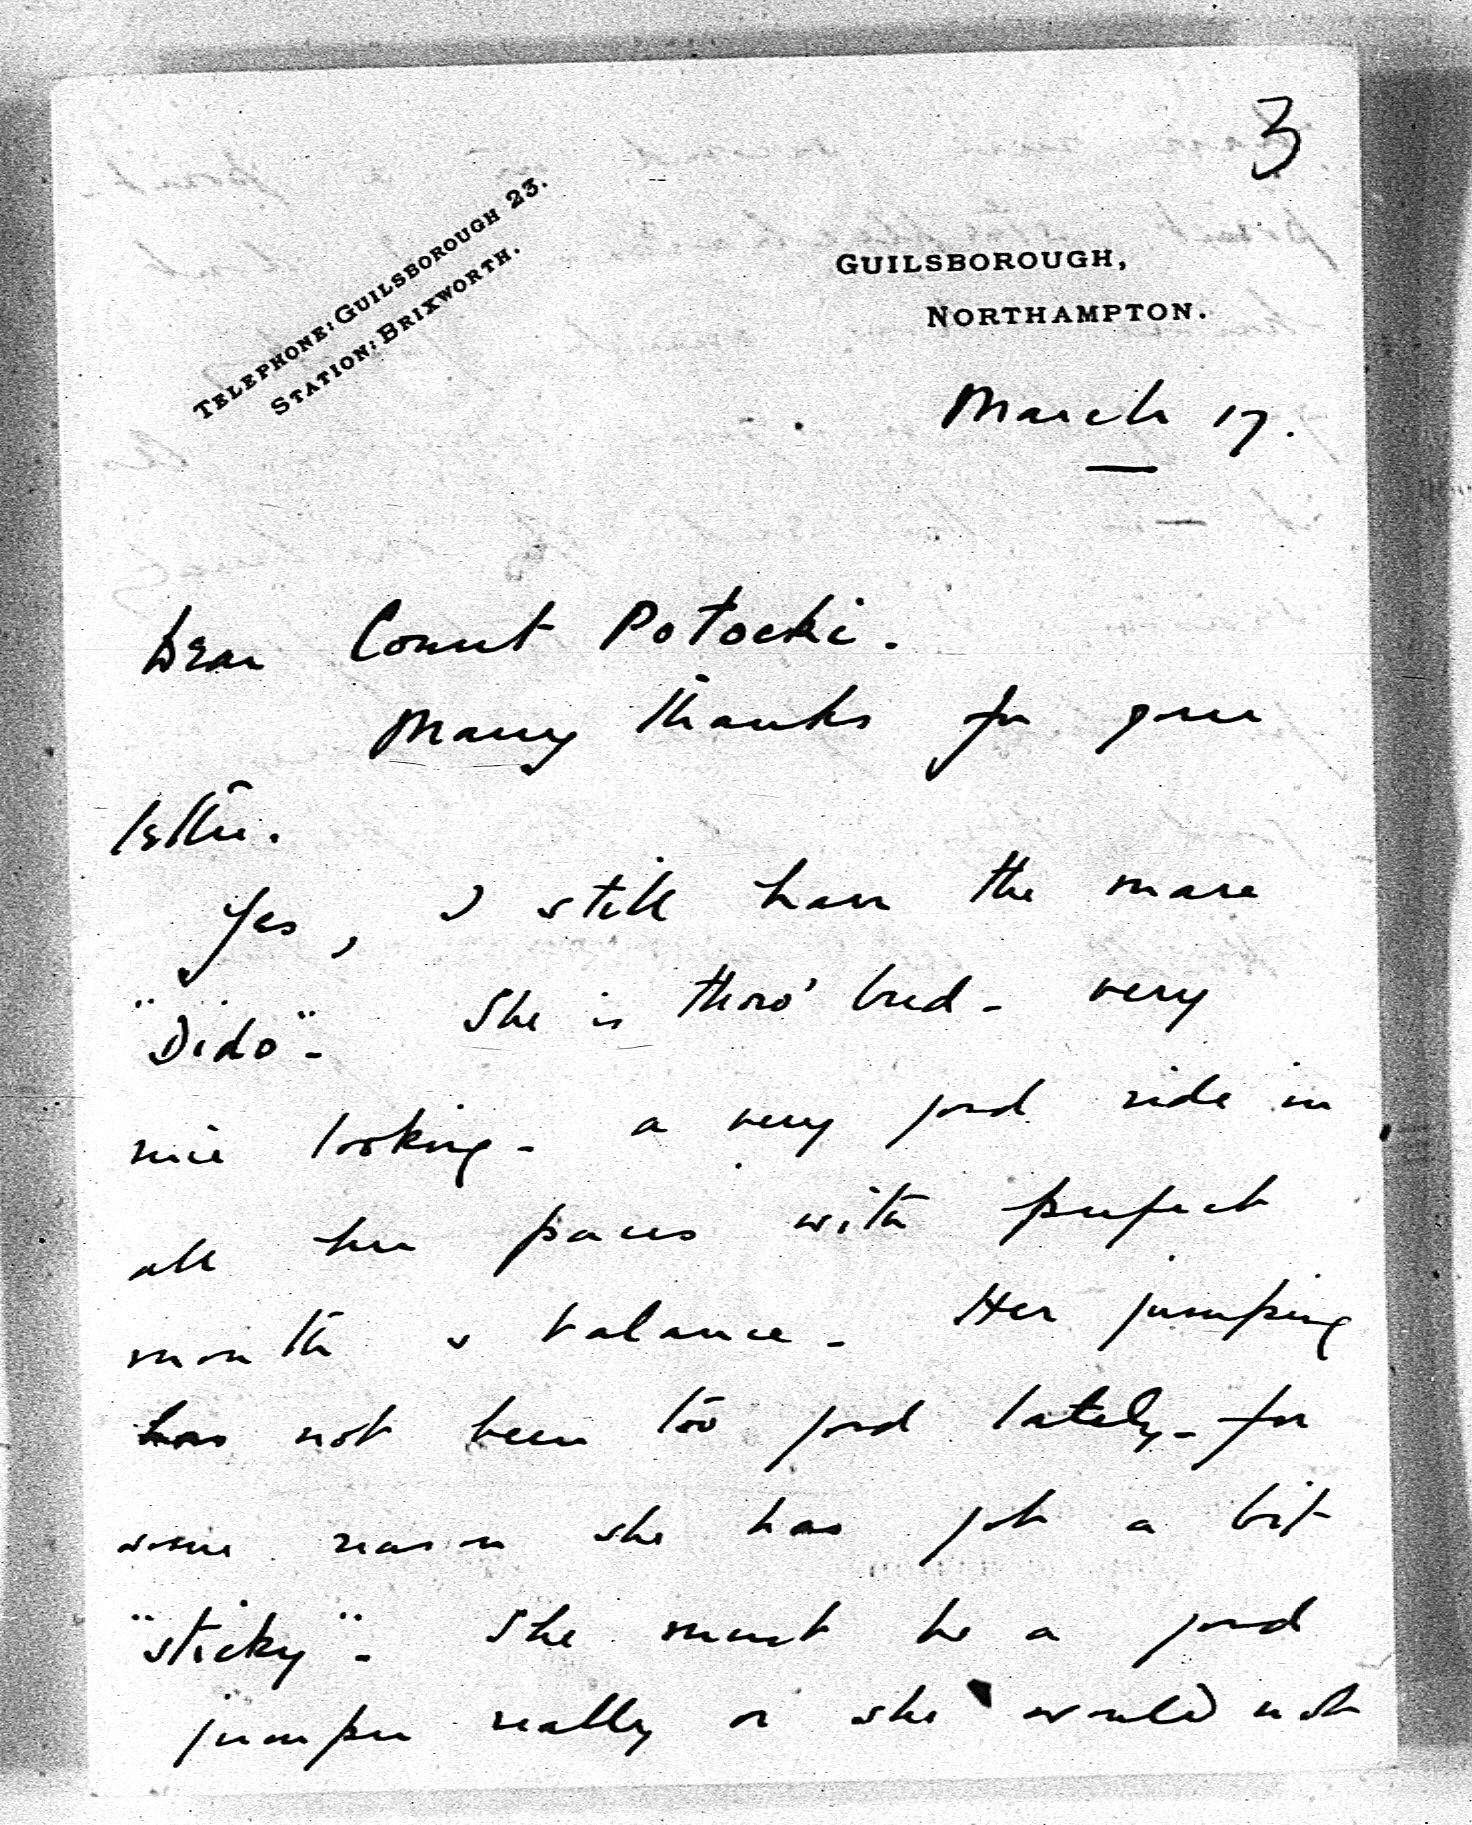 3
TELEPHONE: GUILSBOROUGH 23.
STATION: BRIXWORTH.
GUILSBOROUGH,
NORTHAMPTON.
March 17.
Dear Count Potocki.
Many thanks for your
letter.
Yes, I still have the mare
"Dido"- She is thoro' bred - very
nice looking - a very good ride in
all her paces with perfect
mouth & balance - Her jumping
has not been too good lately - for
some reason she has got a bit
"sticky"- She must be a good
jumper really or she would not